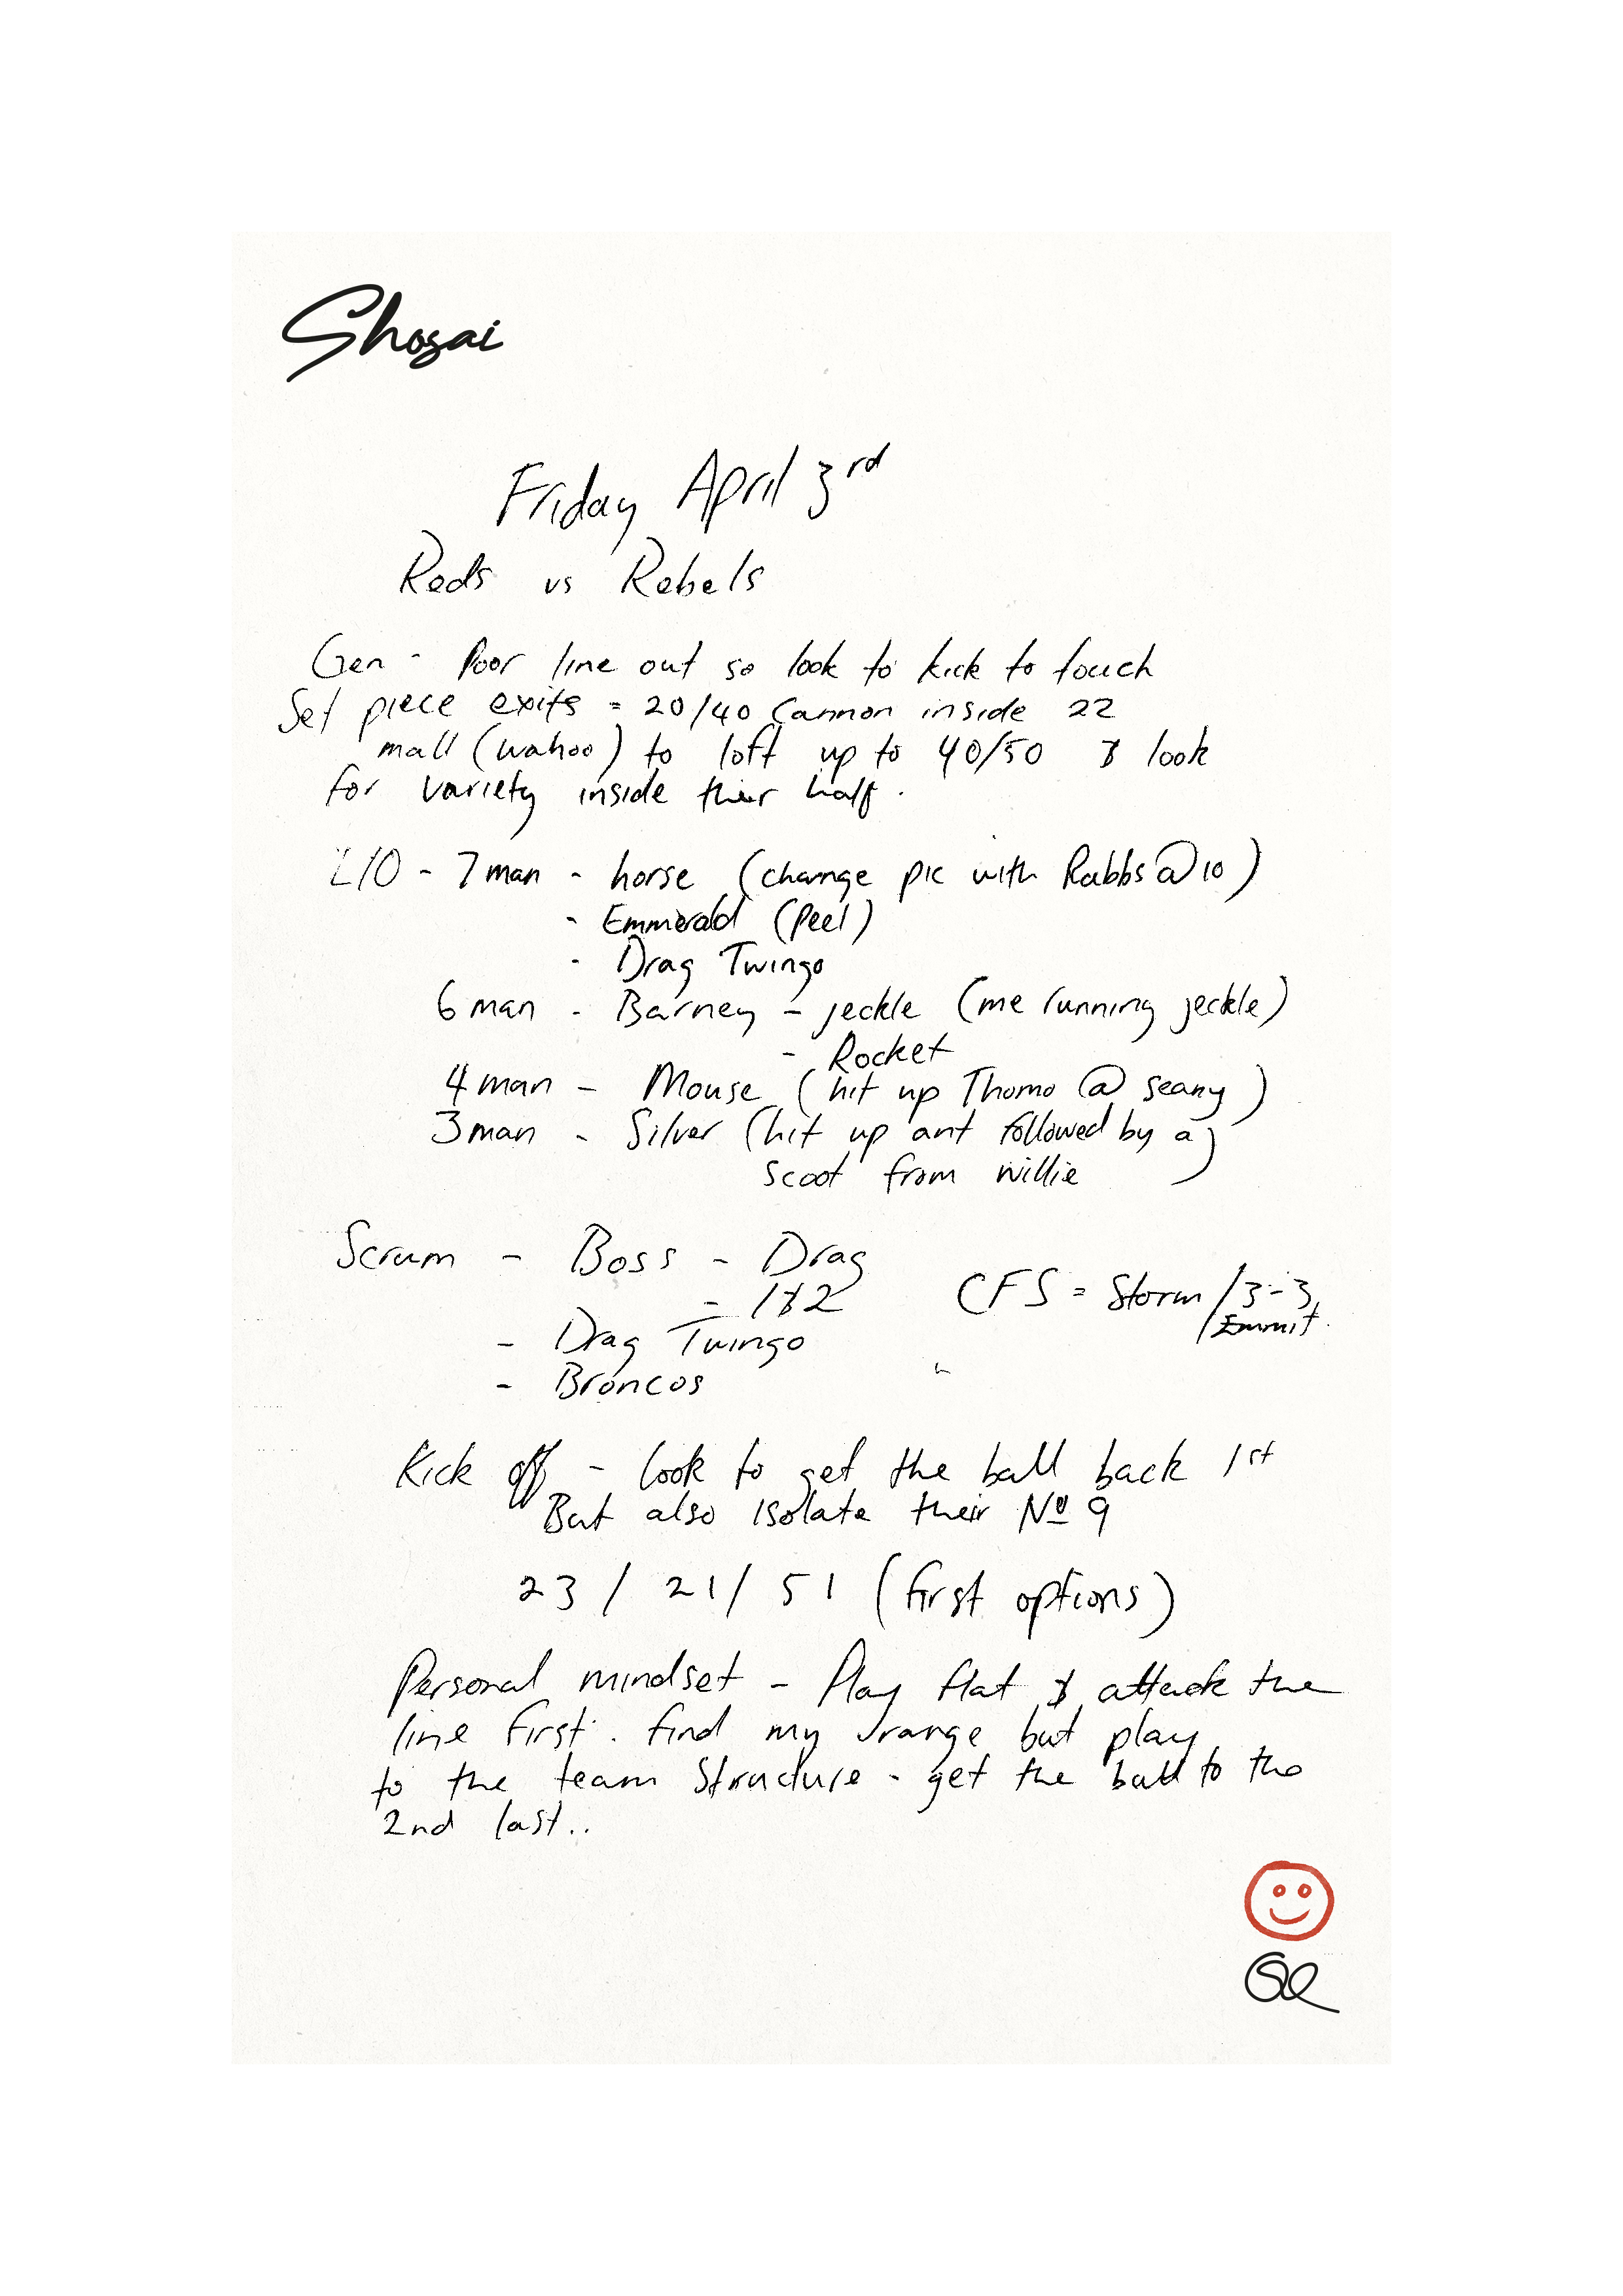 Shosai
Friday April 3rd
Reds vs Rebels
Gen - Poor line out so look to kick to touch
Set piece exits = 20/40 Cannon inside 22
mall (wahoo) to loft up to 40/50 & look
for variety inside their half.
L/O - 7 man - horse (change pic with Rabbs @ 10)
- Emmerald (peel)
- Drag Twingo
6 man - Barney - jeckle (me running jeckle)
- Rocket
4 man - Mouse (hit up Thomo @ seany)
3 man - Silver (hit up ant followed by a
scoot from willie)
Scrum - Boss - Drag
- 1&2
CFS = Storm / 3-3
/Emmit.
- Drag Twingo
- Broncos
Kick off - look to get the ball back 1st
But also isolate their No 9
23 / 21 / 51 (first options)
Personal mindset - Play flat & attack the
line first. find my range but play
to the team structure - get the ball to the
2nd last..